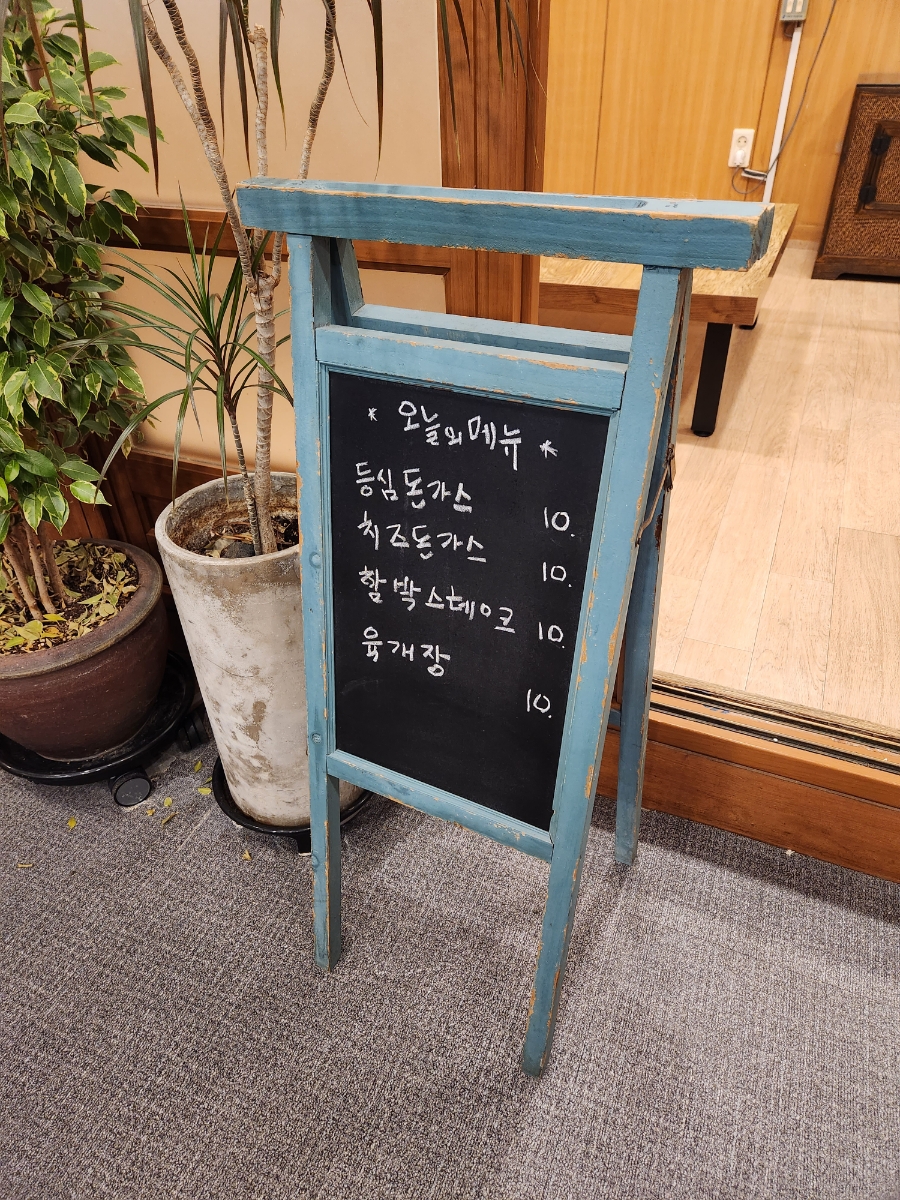 * 오늘의메뉴 *
등심돈가스 10.
치즈돈가스 10.
함박스테이크 10.
육개장 10.